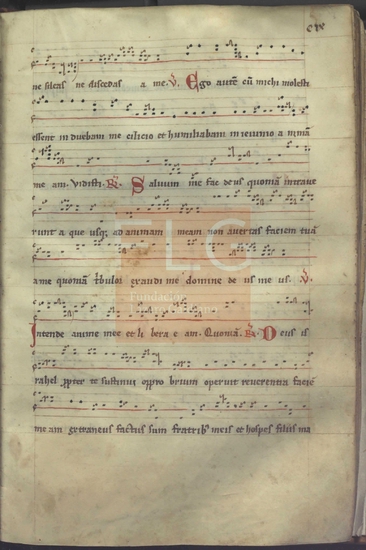 cix
ne sileas ne discedas a me. V. Ego autē cū michi molesti
essent induebam me cilicio et humiliabam in ieiunio animā
meam. Vidisti. R. Saluum me fac deus quoniā intraue
runt aque usq; ad animam meam non auertas faciem tuā
a me quoniā tbulor exaudi me domine deus meus. V.
Intende anime mee et libera eam. Quoniā. R. Deus is
rahel ꝓpter te sustinui ꝓpro brium operuit reuerentia facie
meam extraneus factus sum fratribꝰ meis et hospes filiis ma
LG
Fundación